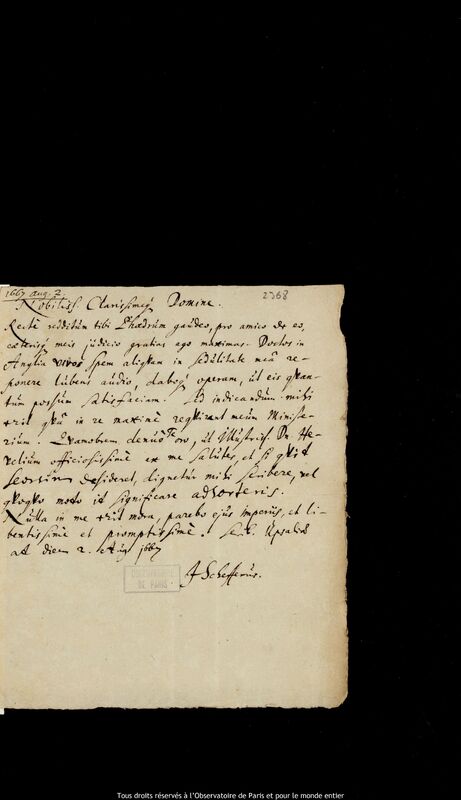 1667 aug. 2.
2368
Nobiliss. Clarissimeq́ Domine.
Recte redditum tibi Phædrum gaudeo, pro amico de eo,
cæterisq́ meis judicio gratias ago maximas. Doctos in
Anglia viros spem aliqvam in sedulitate meâ re-
ponere lubens audio, daboq́ operam, ut eis qvan-
tum possum satisfaciam. Sed indicandum mihi
erit qvâ in re maximè reqvirant meum ministe-
rium. Qvamobrem denuò Te oro, ut Illustriss. Dn. He-
velium officiosissimè ex me salutes, et si qvid
seorsim desideret, dignetur mihi scribere, vel
qvoqvo modo id significare adhorteris.
Nulla in me erit mora, parebo ejus imperiis, et li-
bentissimè et promptissimè. Scrib. Upsaliæ
ad diem 2. Aug 1667
JSchefferus.
OBSERVATOIRE
DE PARIS
Tous droits réservés à l'Observatoire de Paris et pour le monde entier